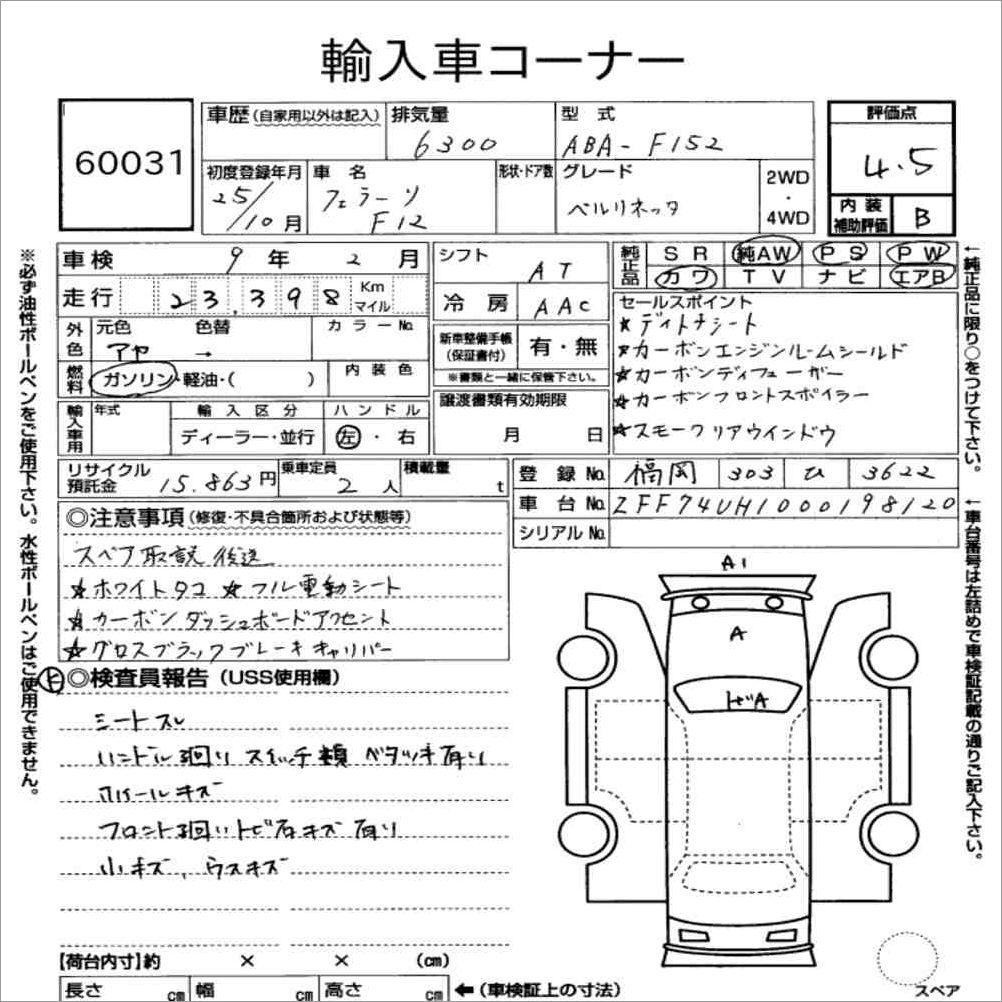 輸入車コーナー
60031
車歴(自家用以外は記入) 排気量 6300 型式 ABA-F152
評価点 4.5
初度登録年月 25/10月 車名 フェラーリ F12 形状・ドア数 グレード ベルリネッタ 2WD・4WD
内装補助評価 B
車検 9年2月
走行 23,398 Km マイル
シフト AT
冷房 AAC
純正品 SR 純AW PS PW
カワ TV ナビ エアB
外色 元色 色替 カラーNo.
アカ →
燃料 ガソリン・軽油・( ) 内装色
新車整備手帳(保証書付) 有・無
※書類と一緒に保管下さい。
セールスポイント
★デイトナシート
★カーボンエンジンルームシールド
★カーボンディフューザー
★カーボンフロントスポイラー
★スモークリアウインドウ
輸入車用 年式 輸入区分 ハンドル
ディーラー・並行 左・右
譲渡書類有効期限
月 日
リサイクル預託金 15.863円 乗車定員 2人 積載量 t
登録No. 福岡 303 ひ 3622
車台No. ZFF74UH1000198120
シリアルNo.
◎注意事項(修復・不具合箇所および状態等)
スペア取説 後送
★ホワイトタコ ★フル電動シート
★カーボンダッシュボードアクセント
★グロスブラックブレーキキャリパー
◎検査員報告(USS使用欄)
シートスレ
ハンドル廻り スイッチ類 ベタツキ有り
ホイールキズ
フロント廻りトビ石キズ有り
小キズ、ウスキズ
A1
A
トビA
【荷台内寸】約 × × (cm)
長さ cm 幅 cm 高さ cm ←(車検証上の寸法)
スペア
※必ず油性ボールペンをご使用下さい。水性ボールペンはご使用できません。
←純正品に限り○をつけて下さい。
←車台番号は左詰めで車検証記載の通りご記入下さい。